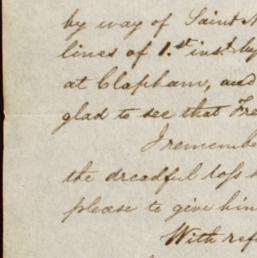 by way of Saint
lines of 1.st inst. by
at Clapham, and
glad to see that Fre
I remembe
the dreadful loss
please to give him
With refe